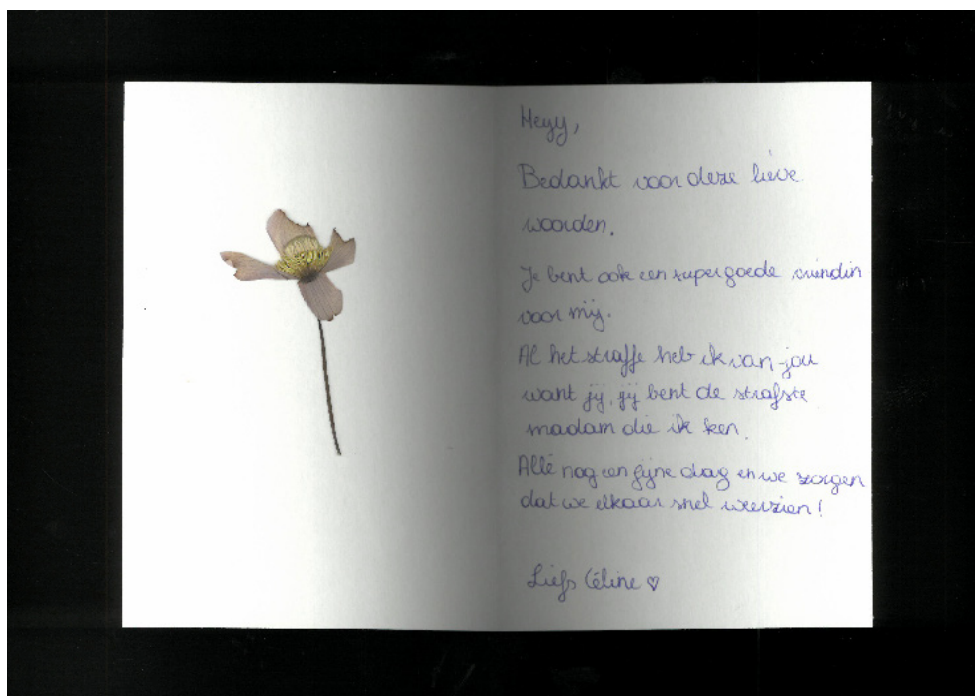 Heyy,
Bedankt voor deze lieve
woorden.
Je bent ook een supergoede vriendin
voor mij.
Al het straffe heb ik van jou
want jij, jij bent de strafste
madam die ik ken.
Allé nog een fijne dag en we zorgen
dat we elkaar snel weerzien!
Liefs Céline ♡